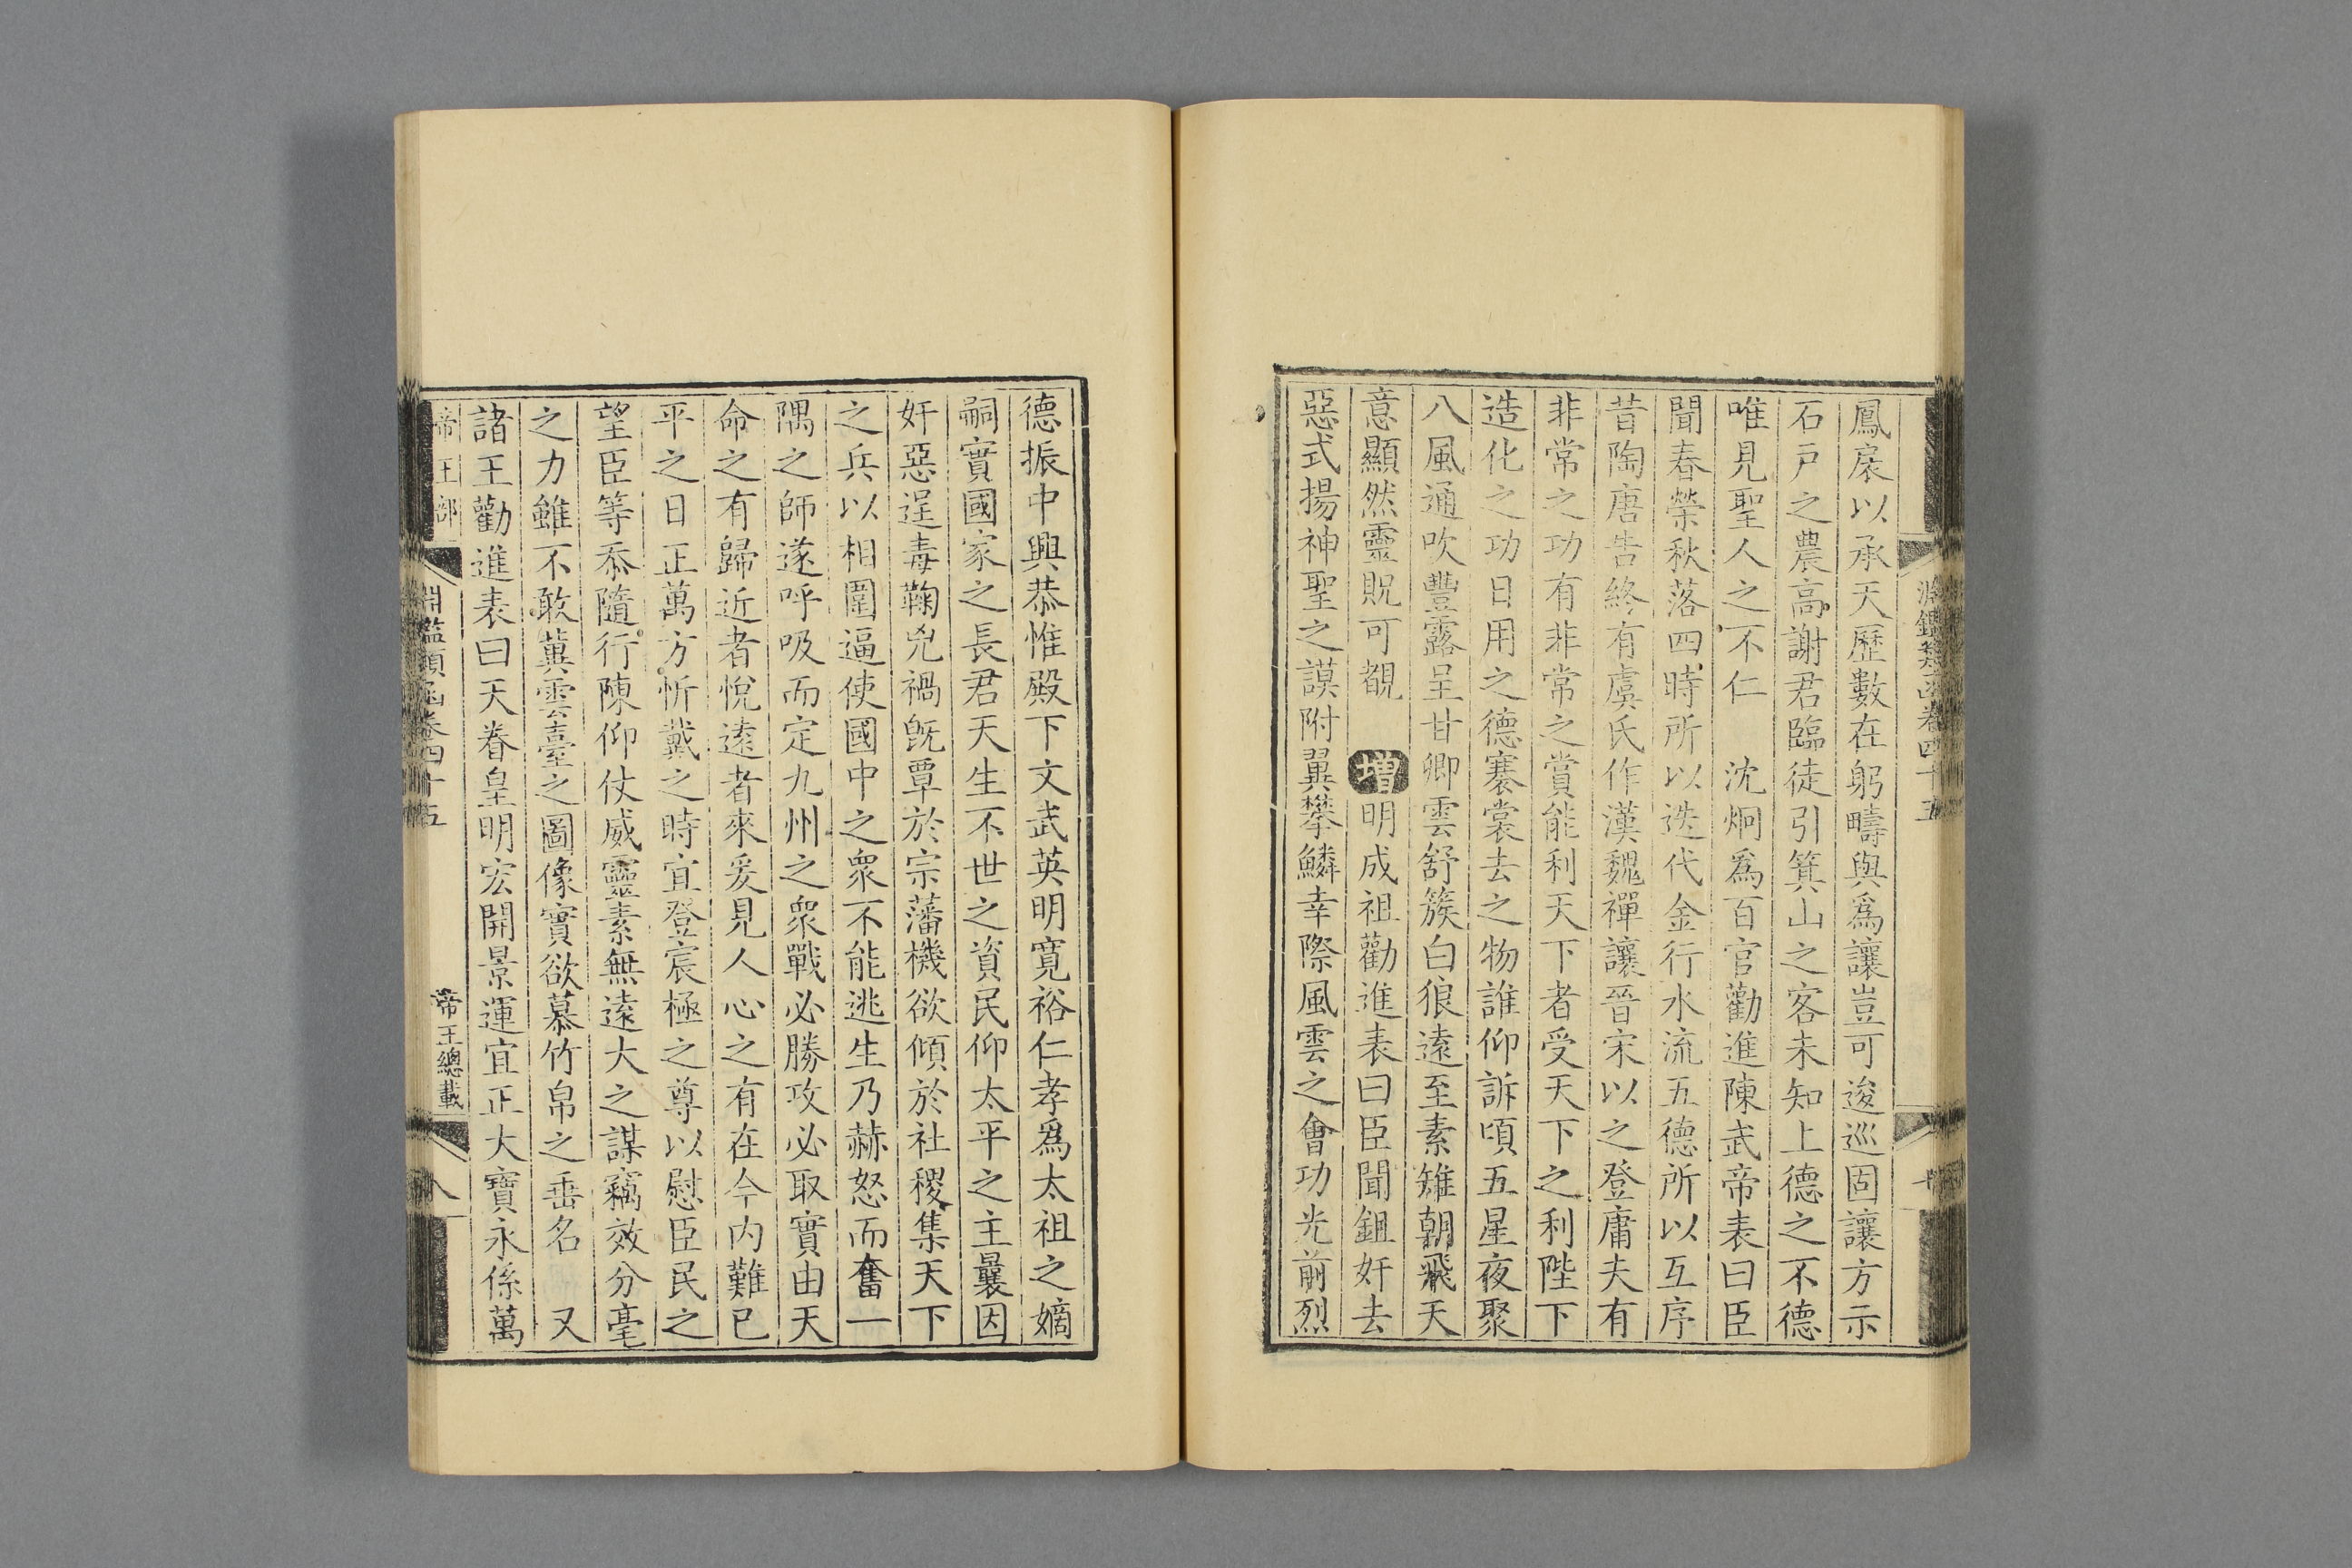 鳳扆以承天歷數在躬疇與爲讓豈可逡巡固讓方示
石戸之農高謝君臨徒引箕山之客未知上德之不德
唯見聖人之不仁　沈炯爲百官勸進陳武帝表曰臣
聞春榮秋落四時所以迭代金行水流五德所以互序
昔陶唐告終有虞氏作漢魏禪讓晉宋以之登庸夫有
非常之功有非常之賞能利天下者受天下之利陛下
造化之功日用之德褰裳去之物誰仰訴頃五星夜聚
八風通吹豐露呈甘卿雲舒簇白狼遠至素雉朝飛天
意顯然靈貺可覩　增明成祖勸進表曰臣聞鉏奸去
惡式揚神聖之謨附翼攀鱗幸際風雲之會功光前烈
德振中興恭惟殿下文武英明寬裕仁孝爲太祖之嫡
嗣實國家之長君天生不世之資民仰太平之主曩因
奸惡逞毒鞠兇禍旣覃於宗藩機欲傾於社稷集天下
之兵以相圍逼使國中之衆不能逃生乃赫怒而奮一
隅之師遂呼吸而定九州之衆戰必勝攻必取實由天
命之有歸近者悅遠者來爰見人心之有在今内難已
平之日正萬方忻戴之時宜登宸極之尊以慰臣民之
望臣等忝隨行陳仰仗威靈素無遠大之謀竊效分毫
之力雖不敢冀雲臺之圖像實欲慕竹帛之垂名　又
諸王勸進表曰天眷皇明宏開景運宜正大寶永係萬
帝王部
淵鑑類函卷四十五
帝王總載
八